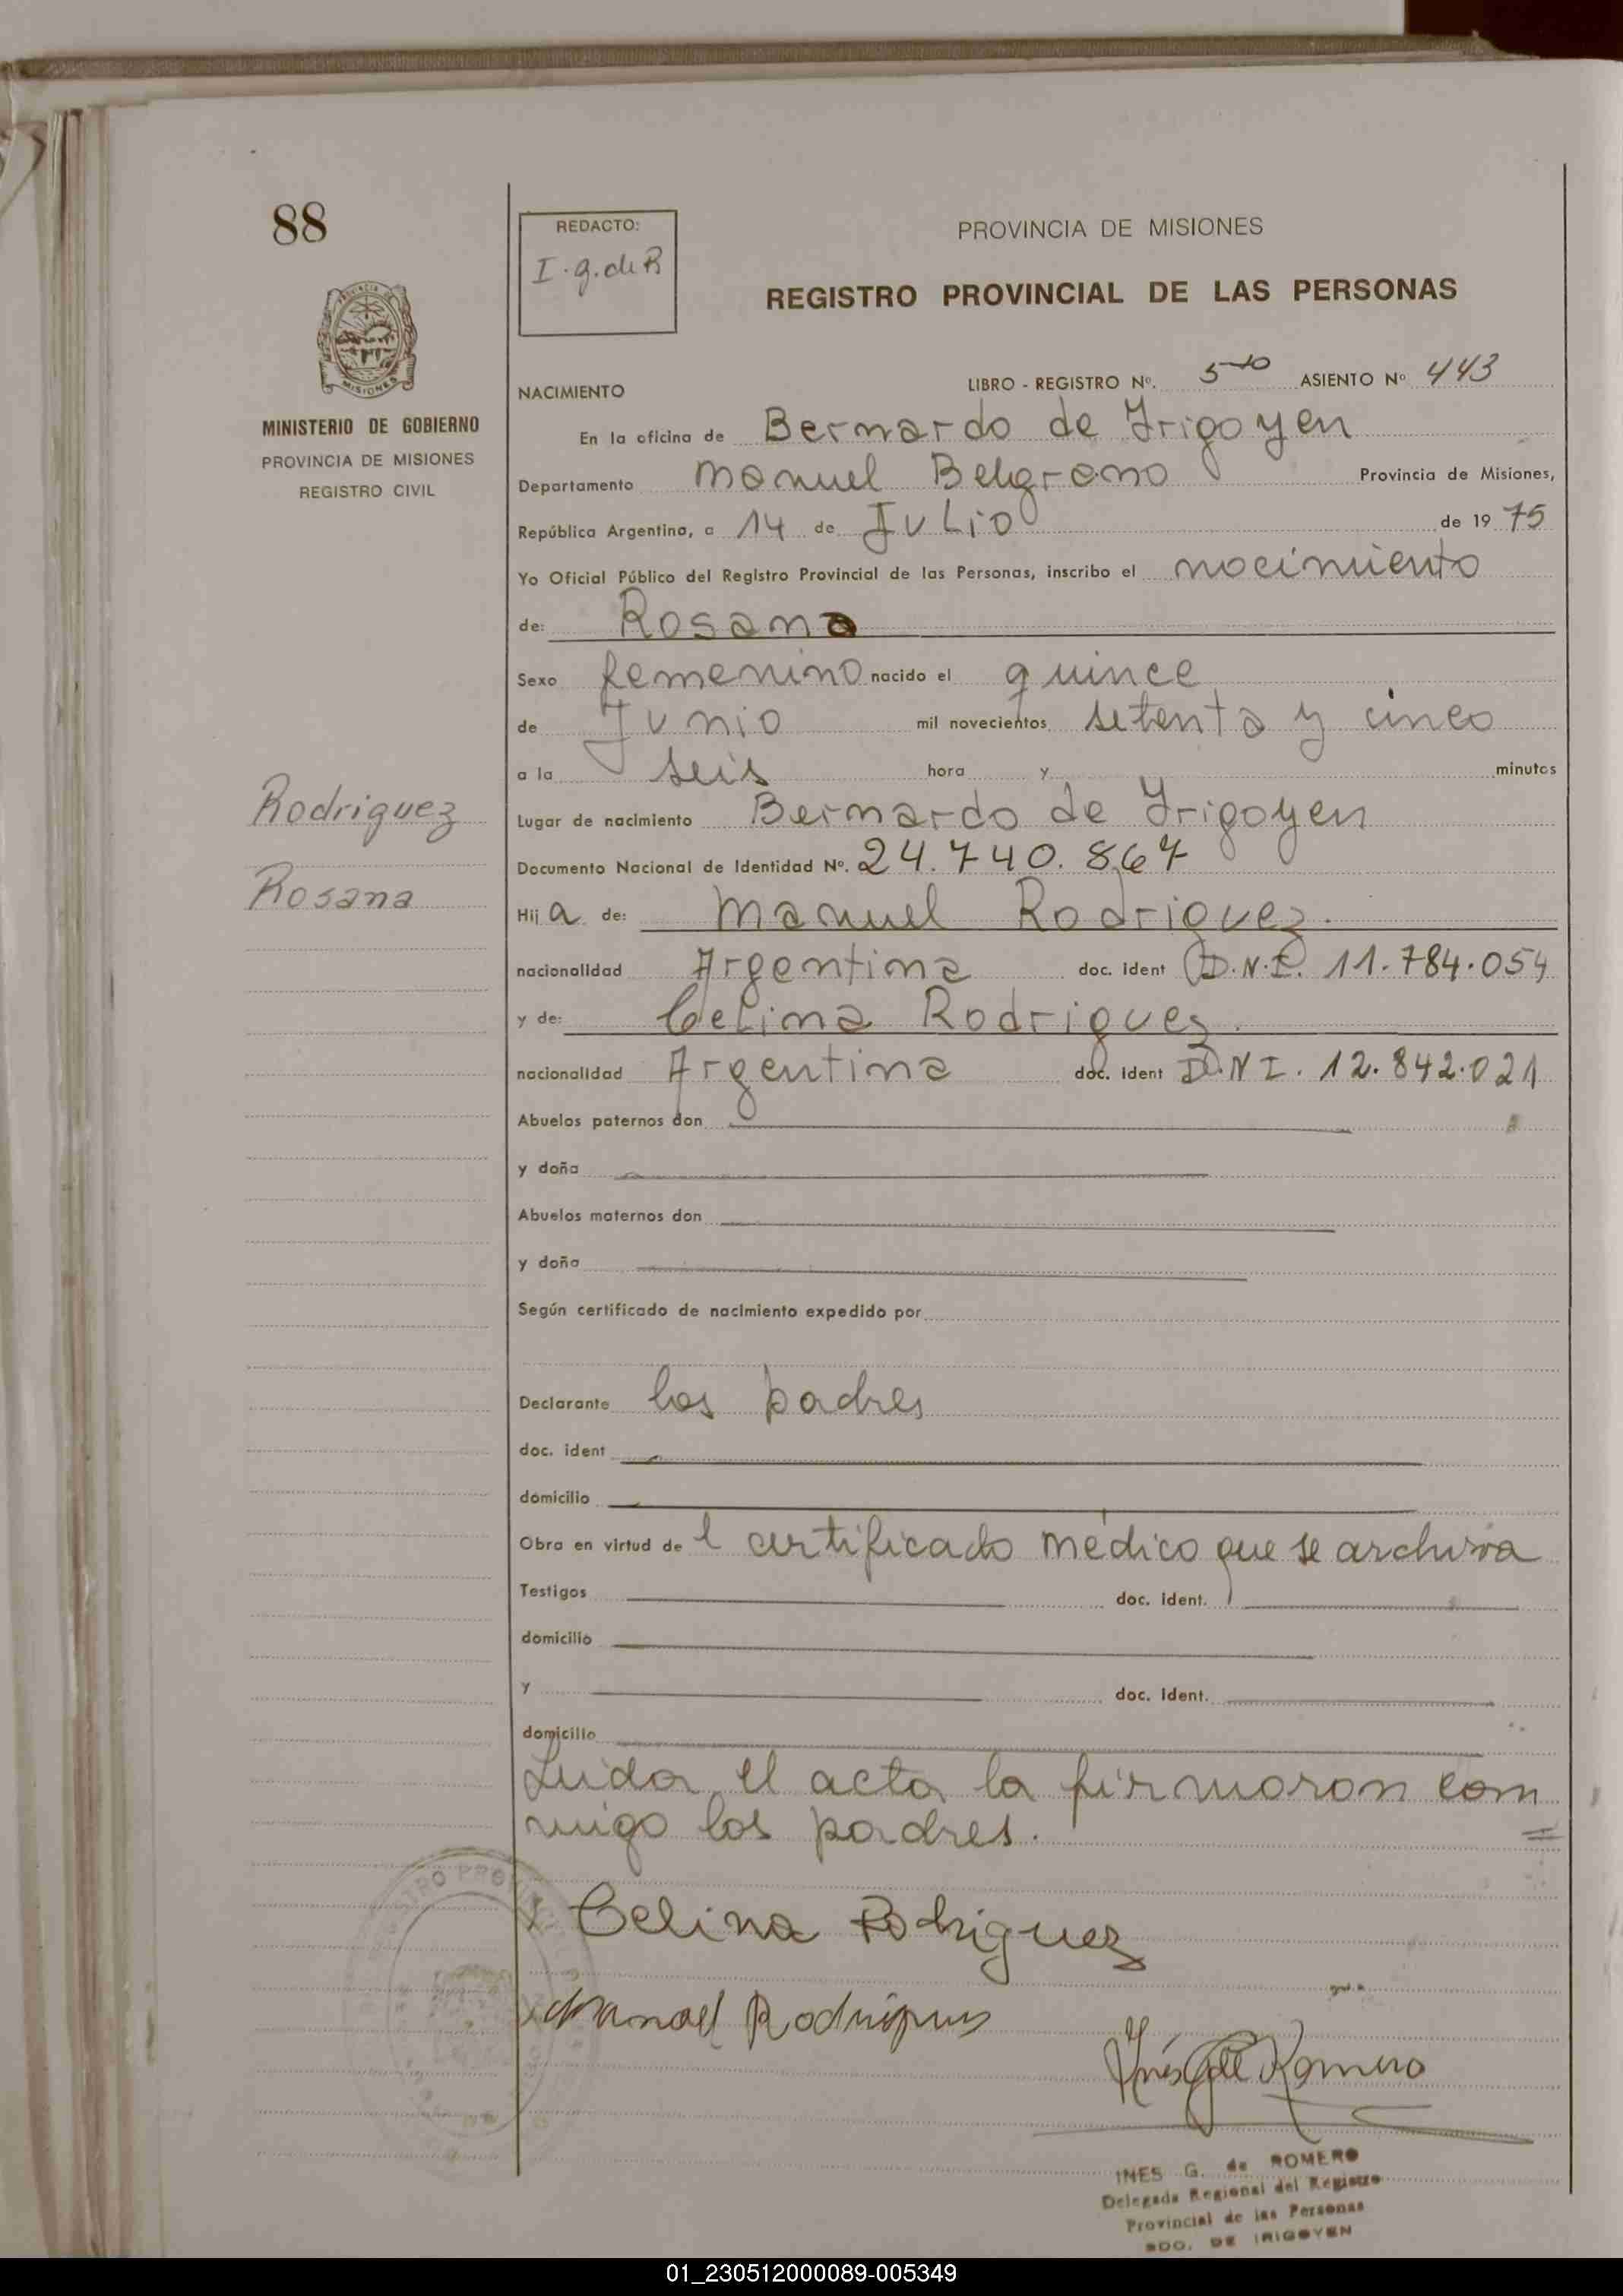 88
REDACTO:
I.g.de R
PROVINCIA DE MISIONES
REGISTRO PROVINCIAL DE LAS PERSONAS
MISIONES
MINISTERIO DE GOBIERNO
PROVINCIA DE MISIONES
REGISTRO CIVIL
NACIMIENTO LIBRO - REGISTRO Nº. 5-10 ASIENTO Nº 443
En la oficina de Bernardo de Irigoyen
Departamento Manuel Belgrano Provincia de Misiones,
República Argentina, a 14 de Julio de 19 75
Yo Oficial Público del Registro Provincial de las Personas, inscribo el nacimiento
de: Rosana
Sexo femenino nacido el quince
de Junio mil novecientos setenta y cinco
a la seis hora y minutos
Rodriguez
Lugar de nacimiento Bernardo de Irigoyen
Documento Nacional de Identidad Nº. 24.740.867
Rosana
Hij a de: Manuel Rodriguez.
nacionalidad Argentina doc. ident D.N.I. 11.784.054
y de: Celina Rodriguez.
nacionalidad Argentina doc. ident D.N.I. 12.842.021
Abuelos paternos don
y doña
Abuelos maternos don
y doña
Según certificado de nacimiento expedido por
Declarante los padres
doc. ident
domicilio
Obra en virtud de l certificado médico que se archiva
Testigos doc. ident.
domicilio
y doc. ident.
domicilio
Leida el acta la firmaron con
migo los padres. =
Celina Rodriguez
Manoel Rodrigues
Inés G de Romero
INES G. de ROMERO
Delegada Regional del Registro
Provincial de las Personas
BDO. DE IRIGOYEN
01_230512000089-005349